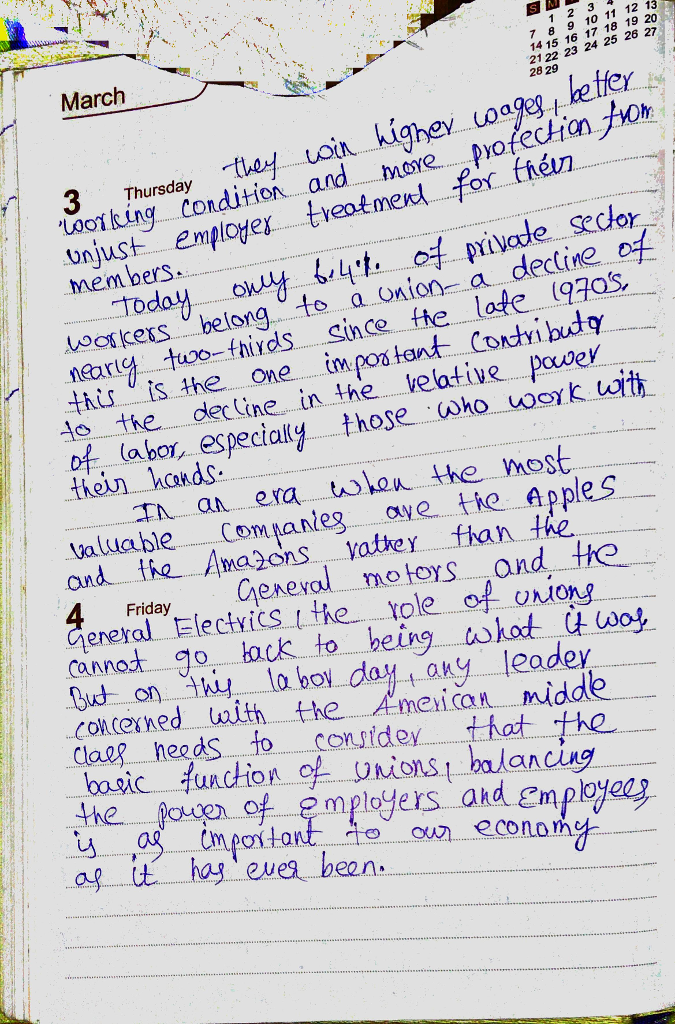 S M
1 2 3 4
7 8 9 10 11 12 13
14 15 16 17 18 19 20
21 22 23 24 25 26 27
28 29
March
they win higher wages, better
3 Thursday
working condition and more protection from
unjust employer treatment for their
members.
Today only 6.4%. of private sector
workers belong to a union- a decline of
nearly two-thirds since the late 1970's.
this is the one important contributor
to the decline in the relative power
of labor, especially those who work with
their hands.
In an era when the most
valuable companies are the Apples
and the Amazons rather than the
4 Friday
General motors and the
General Electrics, the role of unions
cannot go back to being what it was.
But on this labor day, any leader
concerned with the American middle
class needs to consider that the
basic function of unions, balancing
the power of employers and employees,
is as important to our economy
as it has ever been.